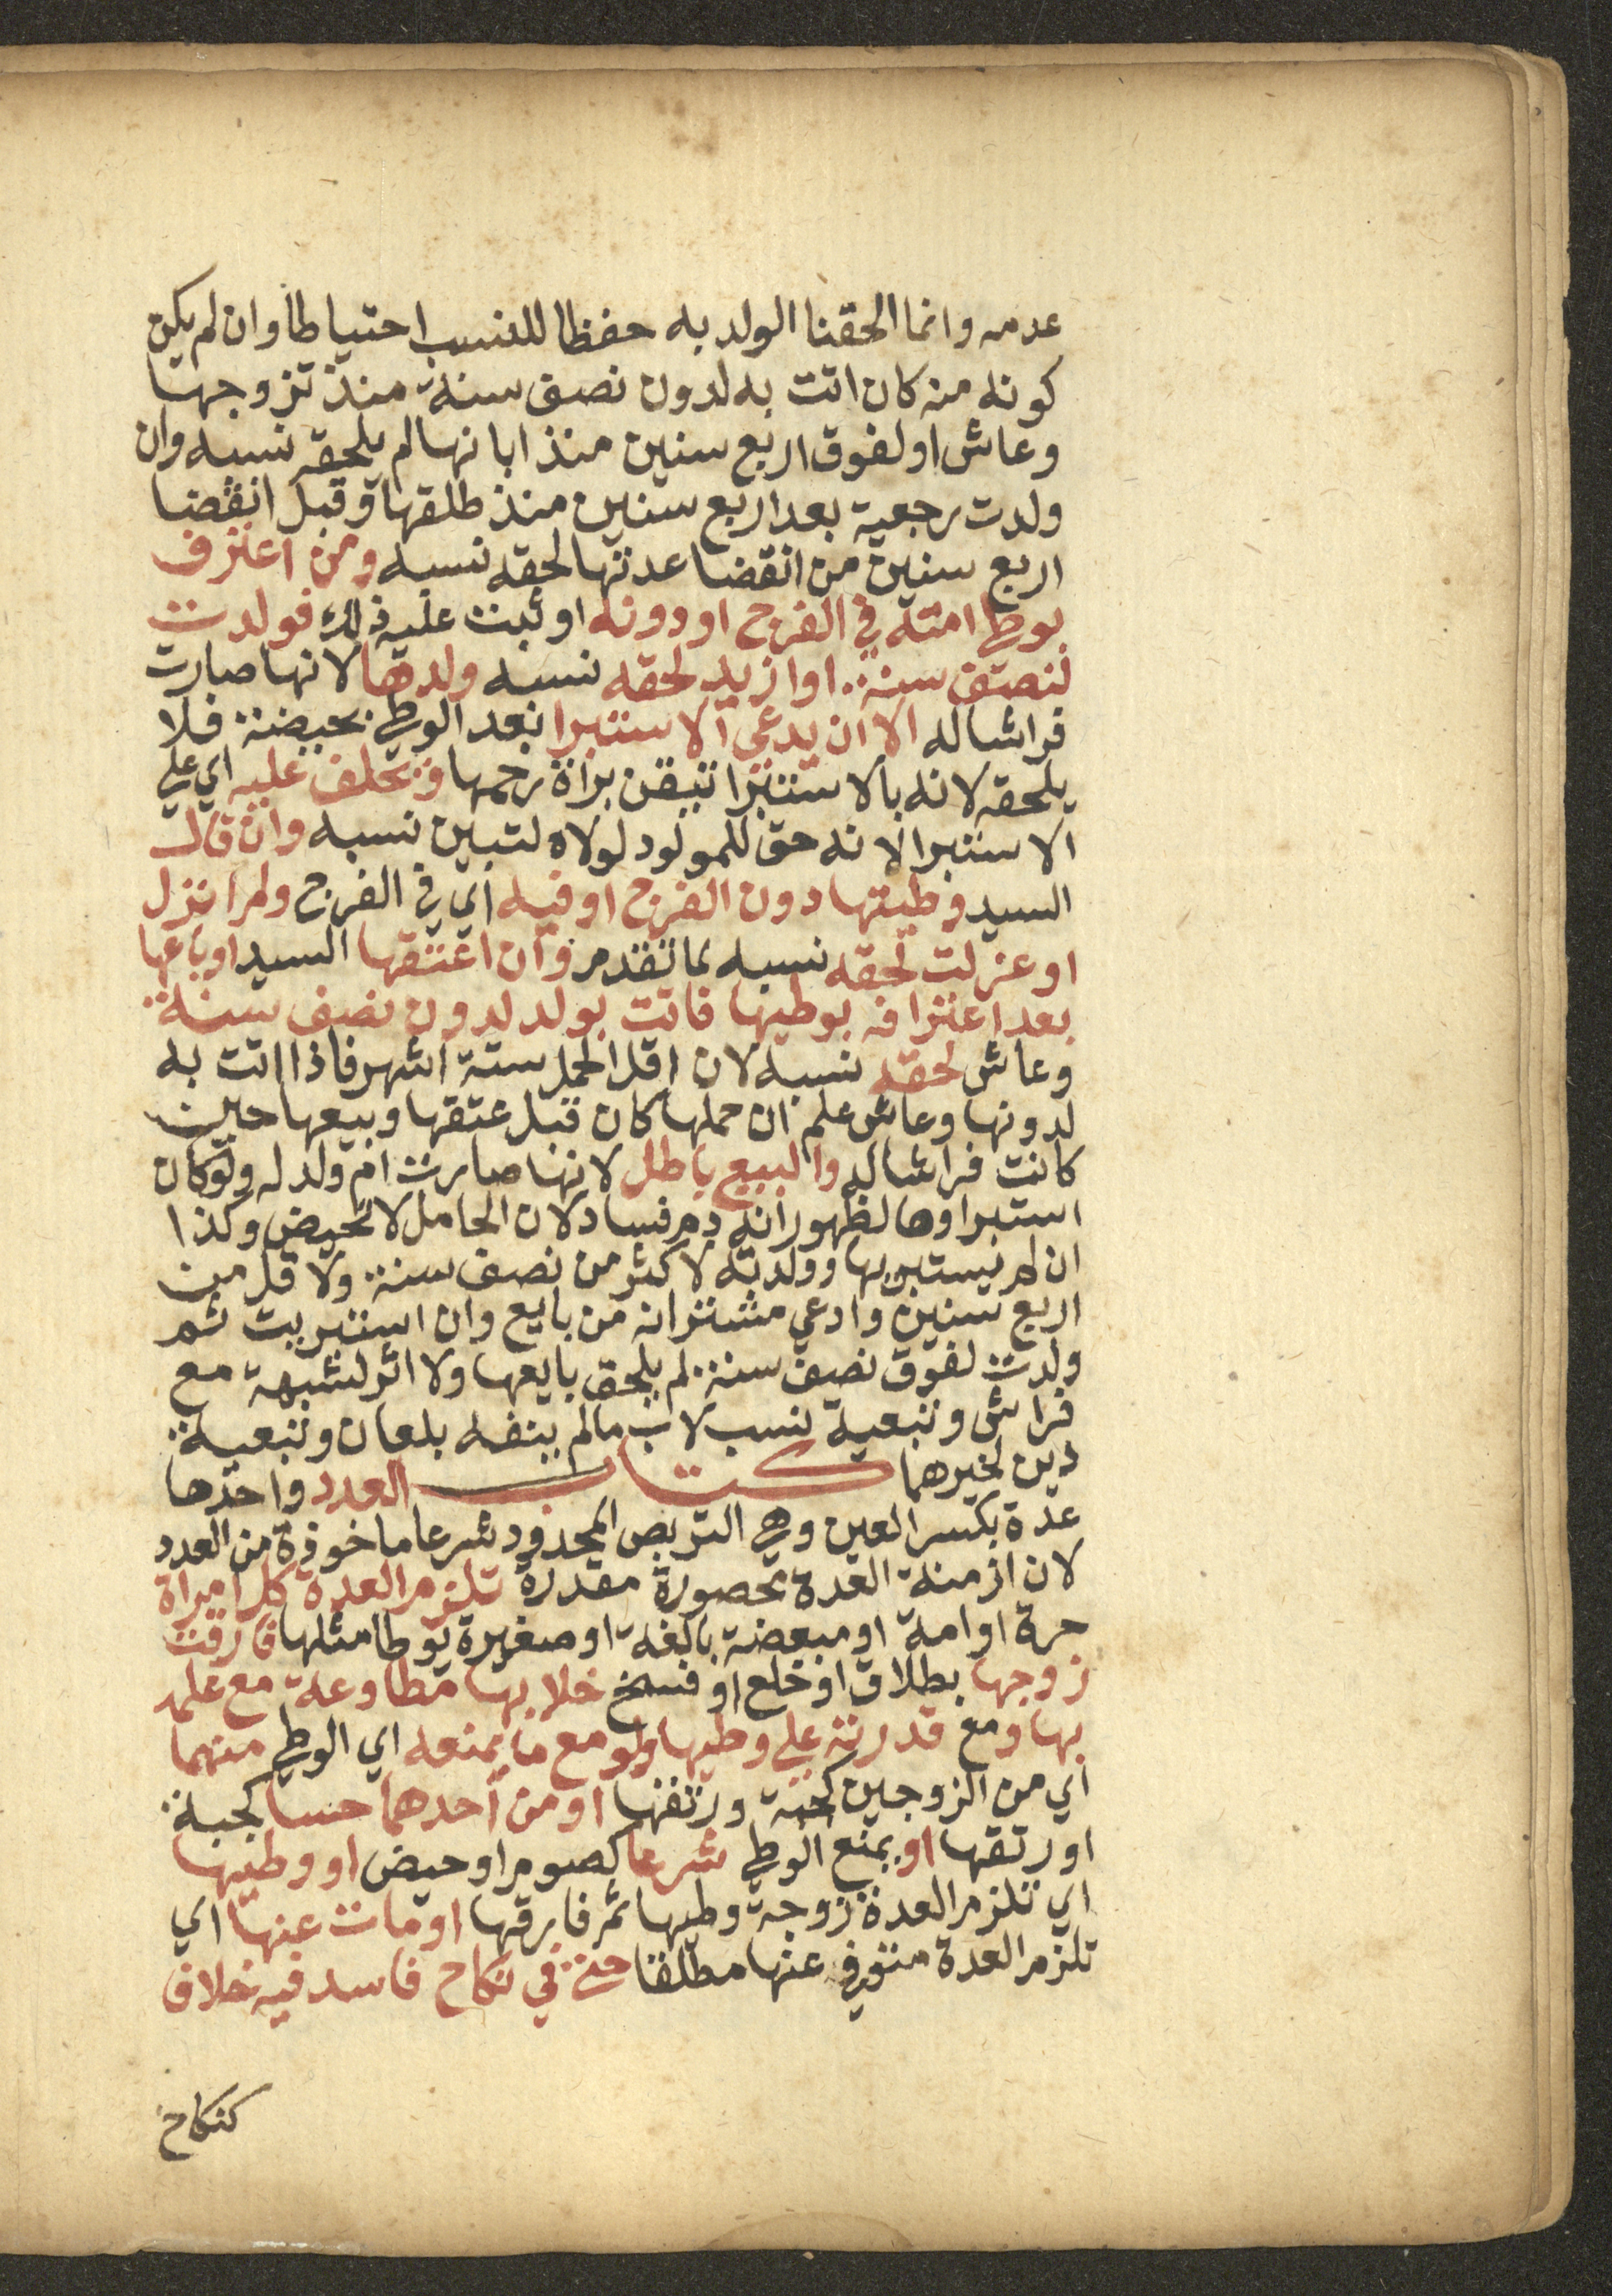 عدمه وانما الحقنا الولد به حفظا للنسب احتياطا وان لم يكن
كونه منه كان اتت به لدون نصف سنة منذ تزوجها
وعاش او لفوق اربع سنين منذ ابانها لم يلحقه نسبه وان
ولدت رجعية بعد اربع سنين منذ طلقها وقبل انقضا
اربع سنين من انقضا عدتها لحقه نسبه ومن اعترف
بوطي امته في الفرج او دونه او ثبت عليه ذلك فولدت
لنصف سنة او ازيد لحقه نسبه ولدها لانها صارت
فراشا له الا ان يدعي الاستبرا بعد الوطي بحيضة فلا
يلحقه لانه بالاستبرا تيقن براة رحمها ويحلف عليه اي علي
الاستبرا لانه حق للمولود لولاه لتبين نسبه وان قال
السيد وطيتها دون الفرج او فيه اي في الفرج ولم انزل
او عزلت لحقه نسبه لما تقدم وان اعتقها السيد او باعها
بعد اعترافه بوطيها فاتت بولد لدون نصف سنة
وعاش لحقه نسبه لان اقل الحمل ستة اشهر فاذا اتت به
لدونها وعاش علم ان حملها كان قبل عتقها وبيعها حين
كانت فراشا له والبيع باطل لانها صارت ام ولد له ولو كان
استبراوها لظهور انه دم فساد لان الحامل لا تحيض وكذا
ان لم يستبريها وولدته لاكثر من نصف سنة ولاقل من
اربع سنين وادعي مشتر انه من بايع وان استبريت ثم
ولدت لفوق نصف سنة لم يلحق بايعها ولا اثر لشبهة مع
فراش وتبعية نسب لاب مالم ينفه بلعان وتبعية
دين لخيرهما كتاب العدد واحدها
عدة بكسر العين وهي التربص المحدود شرعا ماخوذة من العدد
لان ازمنة العدة محصورة مقدرة تلزم العدة كل امراة
حرة او امة او مبعضة بالغة او صغيرة يوطا مثلها فارقت
زوجها بطلاق او خلع او فسخ خلا بها مطاوعة مع علمه
بها ومع قدرته علي وطيها ولو مع ما يمنعه اي الوطي منهما
اي من الزوجين كجبه ورتقها او من احدهما حسا كجبه
او رتقها او يمنع الوطي شرعا كصوم او حيض او وطيها
اي تلزم العدة زوجة وطيها ثم فارقها او مات عنها اي
تلزم العدة متوفي عنها مطلقا حتي في نكاح فاسد فيه خلاف
كنكاح